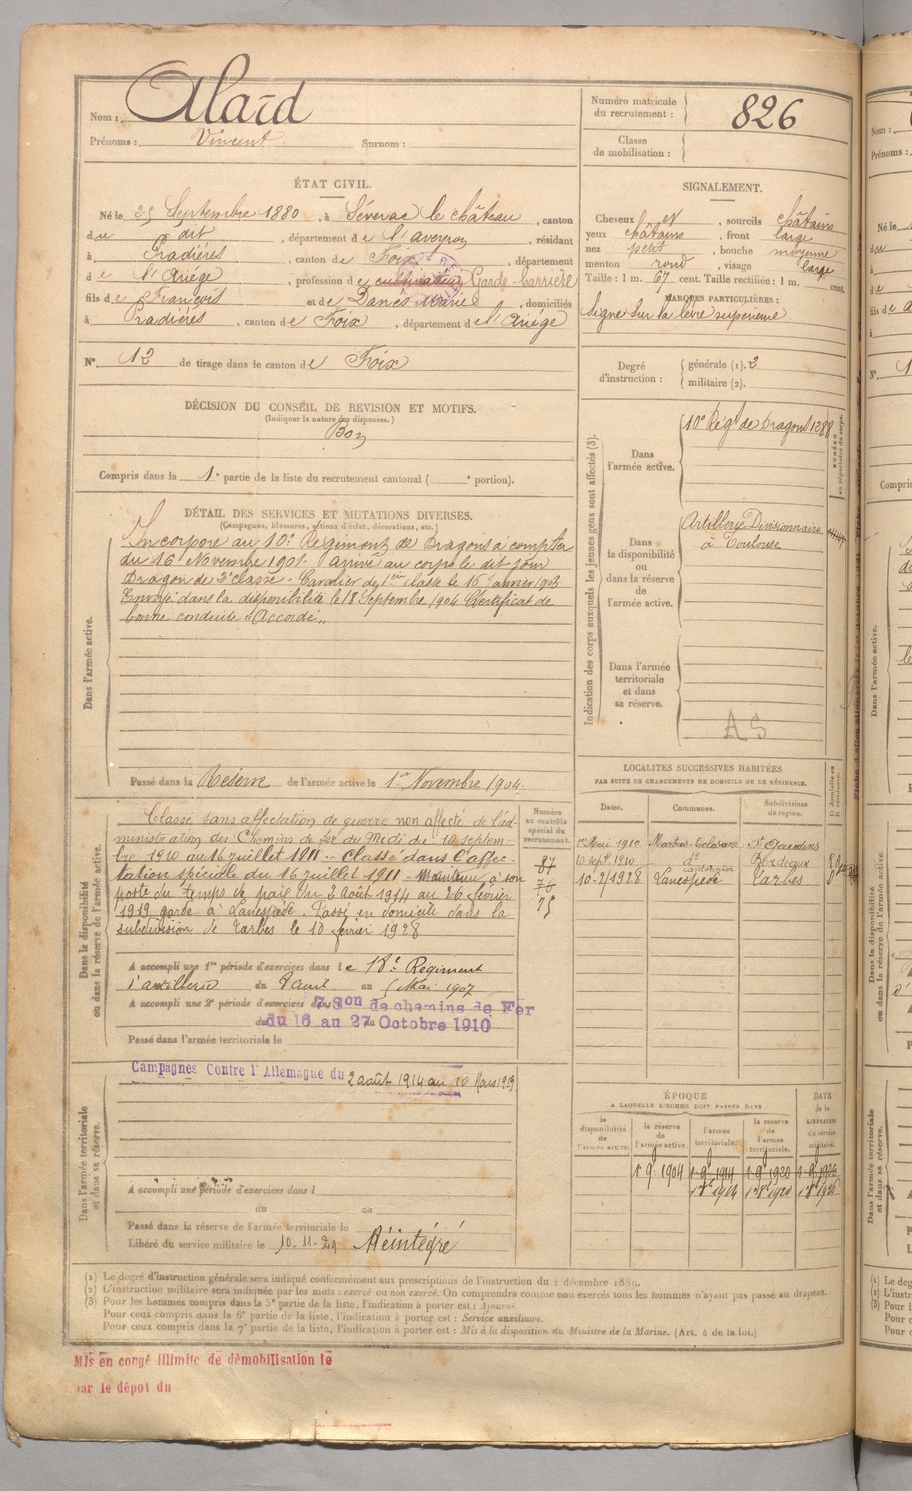 Nom : Alard
Prénoms : Vincent Surnom :
Numéro matricule du recrutement : 826
Classe de mobilisation :
ÉTAT CIVIL.
Né le 25 Septembre 1880, à Séverac le château, canton
du dit, département de l'aveyron, résidant
à Pradières, canton de Foix, département
de l'Ariége, profession de cultivateur Garde-barrière
fils de François et de Danés Marie, domiciliés
à Pradières, canton de Foix, département de l'Ariége
N° 12 de tirage dans le canton de Foix
SIGNALEMENT.
Cheveux et, sourcils châtains
yeux châtains, front large
nez petit, bouche moyenne
menton rond, visage large
Taille : 1 m. 67 cent. Taille rectifiée : 1 m. cent.
MARQUES PARTICULIÈRES :
Signe sur la lèvre supérieure.
Degré d'instruction : générale (1). 2
militaire (2).
DÉCISION DU CONSEIL DE REVISION ET MOTIFS.
(Indiquer la nature des dispenses.)
Bon
Compris dans la 1e partie de la liste du recrutement cantonal ( e portion).
DÉTAIL DES SERVICES ET MUTATIONS DIVERSES.
(Campagnes, blessures, actions d'éclat, décorations, etc.)
Dans l'armée active.
Incorporé au 10e Régiment de Dragons à compter
du 16 Novembre 1901. arrivé au corps le dit jour
Dragon de 2e classe. Cavalier de 1ere classe le 16 Janvier 1903
Envoyé dans la disponibilité le 18 Septembre 1904 Certificat de
bonne conduite "Accordé"
Passé dans la Réserve de l'armée active le 1er Novembre 1904.
Indication des corps auxquels les jeunes gens sont affectés (3).
Dans l'armée active.
10e Régt de Dragons 1288
Dans la disponibilité ou dans la réserve de l'armée active.
Artillerie Divisionnaire
à Toulouse
Dans l'armée territoriale et dans sa réserve.
AS
Dans la disponibilité ou dans la réserve de l'armée active.
Classé sans affectation de guerre non affecté de l'ad-
ministration des Chemins de fer du Midi du 10 septem-
bre 1910 au 16 juillet 1911 - Classé dans l'affec-
tation spéciale du 16 juillet 1911 - Maintenu à son
poste du temps de paix du 2 Août 1914 au 26 février
1919 garde à Lanespède. Passé en domicile dans la
subdivision de Tarbes le 10 février 1928
Numéro au contrôle spécial du recrutement.
87
76
75
A accompli une 1re période d'exercices dans le 18e Régiment
d'artillerie du 8 avril au 5 Mai 1907
A accompli une 2e période d'exercices dans
7 Son de chemins de Fer
du 16 au 27 Octobre 1910
Passé dans l'armée territoriale le
LOCALITES SUCCESSIVES HABITÉES
PAR SUITE DE CHANGEMENTS DE DOMICILE OU DE RÉSIDENCE.
Dates. Communes. Subdivisions de région. D domicile ou R résidence.
1er Mai 1910 Martres-Tolosane St Gaudens
10 sept. 1910 do Bordeaux
10-2/1928 Lanespède Tarbes
Dans l'armée territoriale et dans sa réserve.
Campagnes Contre l'Allemagne du 2 août 1914 au 10 Mars 1919
A accompli une période d'exercices dans l
du au
Passé dans la réserve de l'armée territoriale le
Libéré du service militaire le 10-11-29 Réintégré
ÉPOQUE
A LAQUELLE L'HOMME DOIT PASSER DANS
la disponibilité de l'armée active. la réserve de l'armée active. l'armée territoriale. la réserve de l'armée territoriale. DATE de la LIBÉRATION du service militaire.
1.9.1904 1.9.1914 1.9.1920 1.9.1926
(1) Le degré d'instruction générale sera indiqué conformément aux prescriptions de l'instruction du 4 décembre 1889.
(2) L'instruction militaire sera indiquée par les mots : exercé ou non exercé. On comprendra comme non exercés tous les hommes n'ayant pas passé au drapeau.
(3) Pour les hommes compris dans la 5e partie de la liste, l'indication à porter est : Ajourné.
Pour ceux compris dans la 6e partie de la liste, l'indication à porter est : Service auxiliaire.
Pour ceux compris dans la 7e partie de la liste, l'indication à porter est : Mis à la disposition du Ministre de la Marine. (Art. 4 de la loi.)
Mis en congé illimité de démobilisation le
par le dépot du